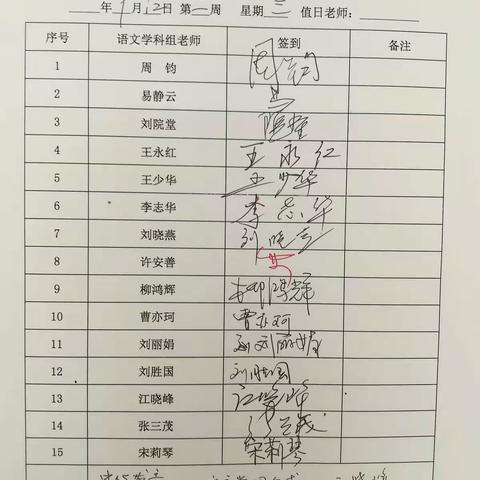 年 9 月 12 日 第 一 周 星期 三 值日老师：
序号 语文学科组老师 签到 备注
1 周 钧 周钧
2 易静云
3 刘院堂
4 王永红 王永红
5 王少华 王少华
6 李志华 李志华
7 刘晓燕 刘晓燕
8 许安善
9 柳鸿辉 柳鸿辉
10 曹亦珂 曹亦珂
11 刘丽娟 刘丽娟
12 刘胜国 刘胜国
13 江晓峰 江晓峰
14 张三茂
15 宋莉琴 宋莉琴